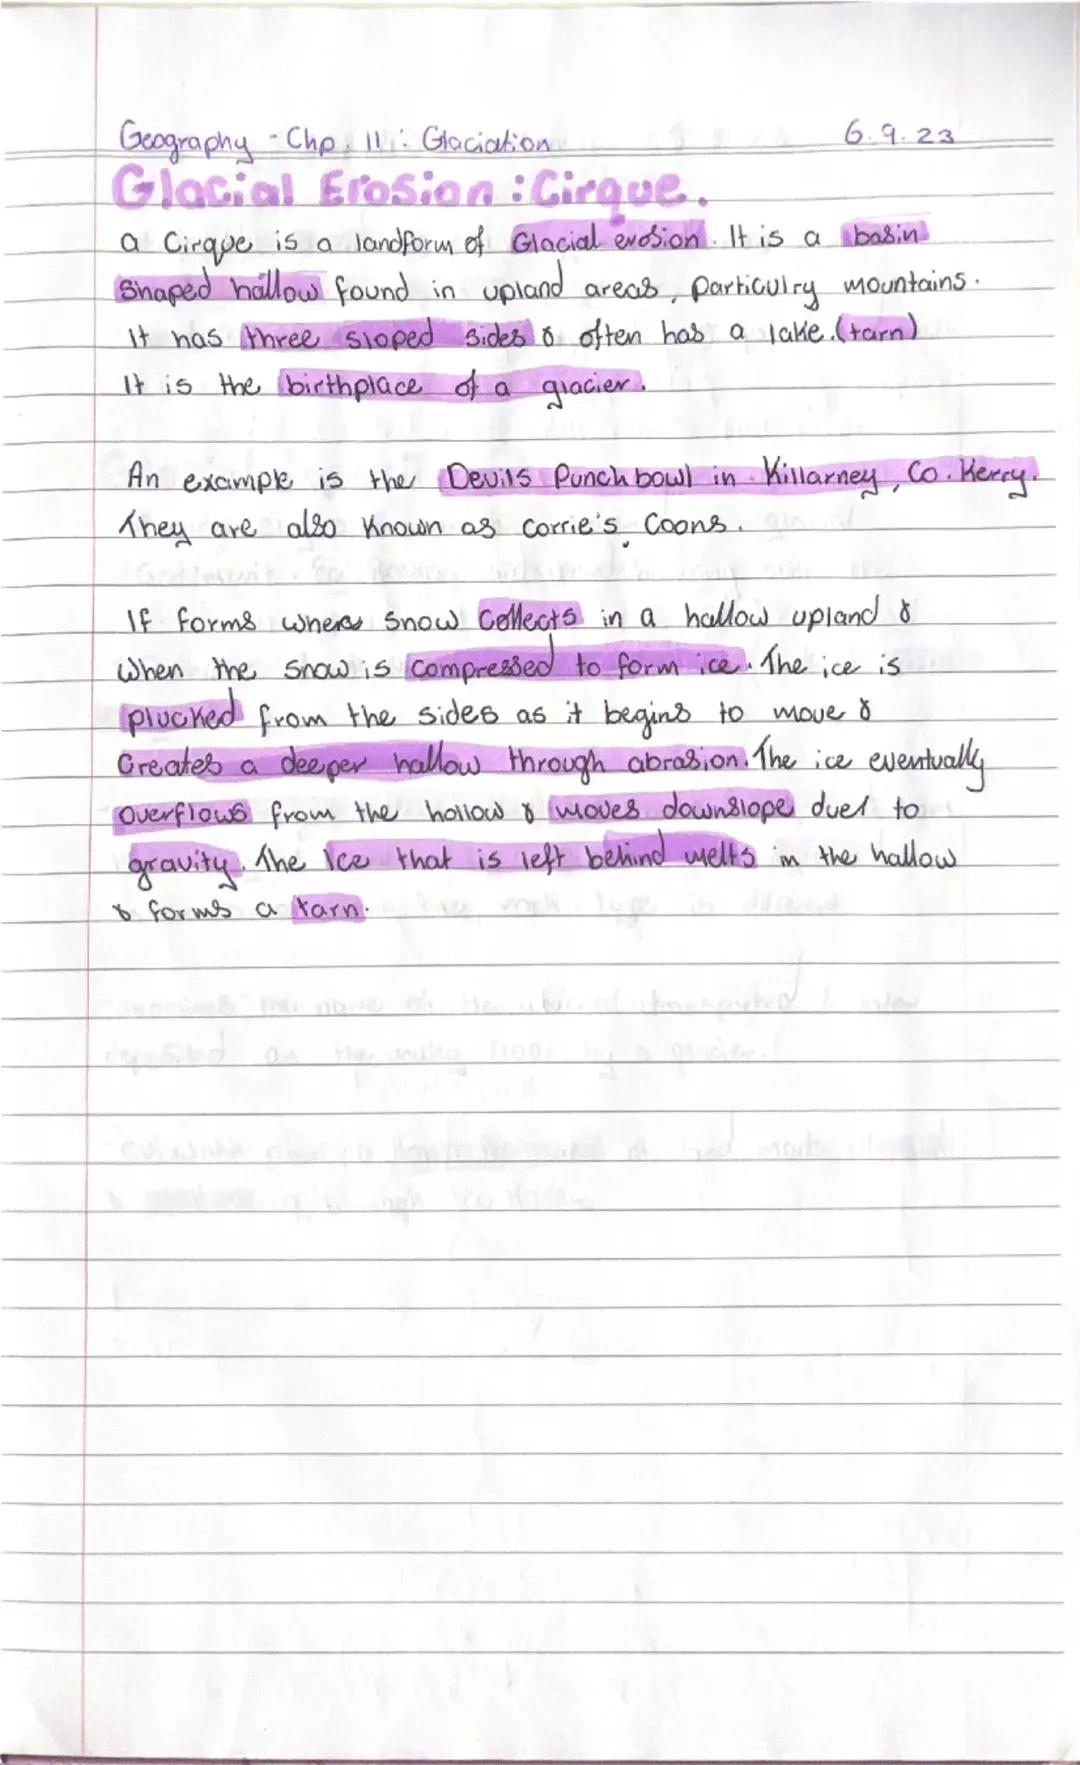 Geography - Chp. 11 : Glaciation 6.9.23
Glacial Erosion : Cirque.
a Cirque is a landform of Glacial erosion. It is a basin
Shaped hallow found in upland areas, particulry mountains.
It has three sloped sides & often has a lake.(tarn)
It is the birthplace of a glacier.
An example is the Devils Punch bowl in Killarney, Co. Kerry.
They are also known as Corrie's, Coons.
If forms where snow Collects in a hallow upland &
when the snow is compressed to form ice. The ice is
plucked from the sides as it begins to move &
Creates a deeper hallow through abrasion. The ice eventually
overflows from the hollow & moves downslope duet to
gravity. The Ice that is left behind melts in the hallow
& forms a tarn.